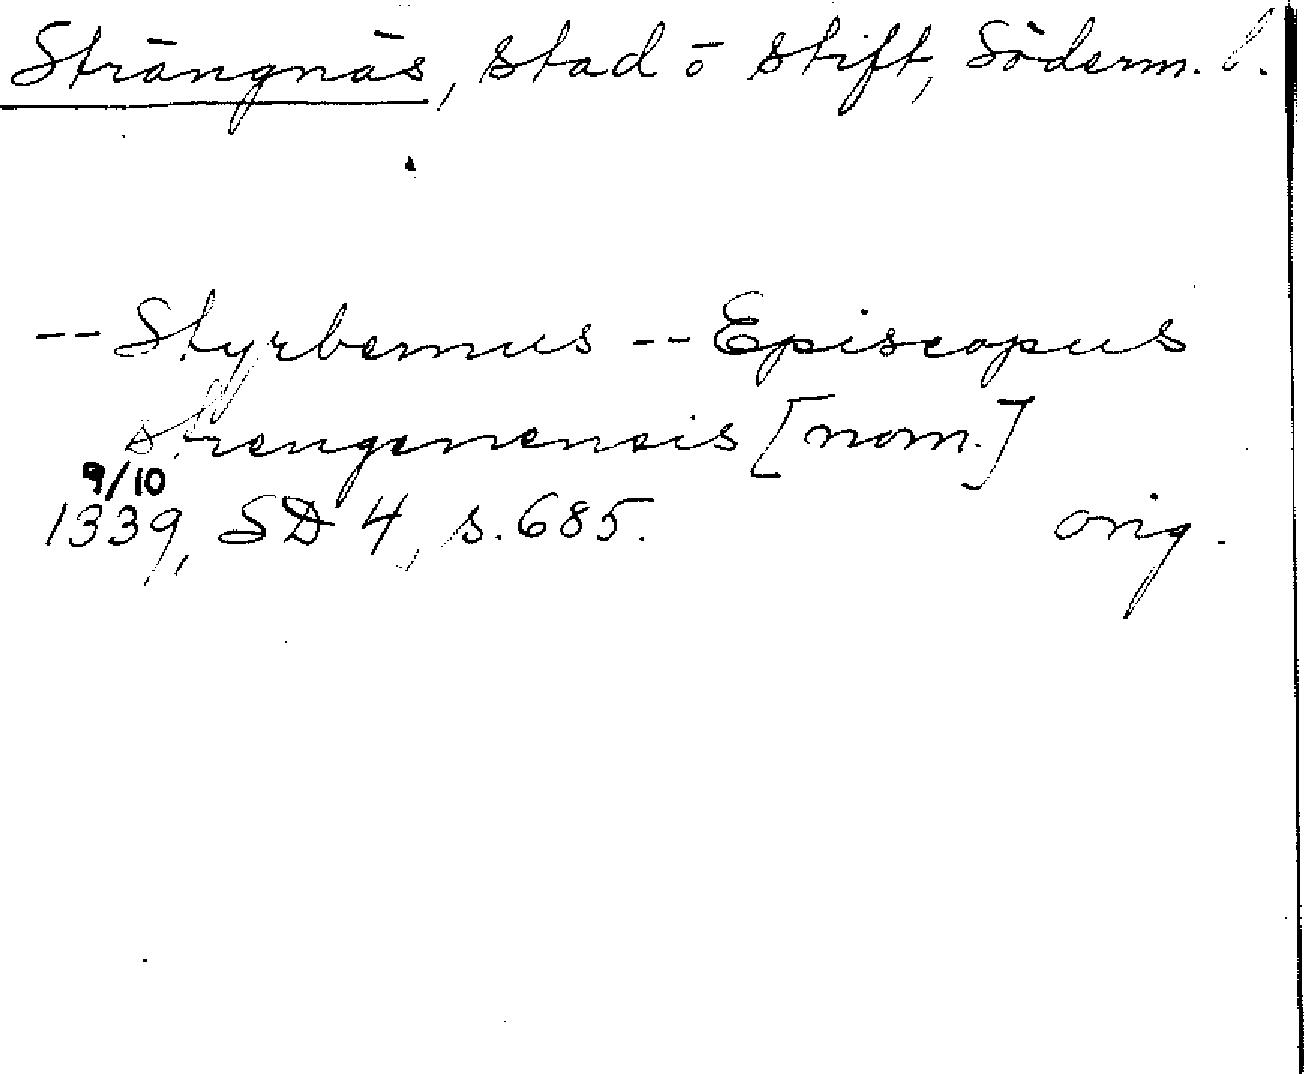 Strängnäs, stad o stift, Söderm. l.
-- Styrbernus -- Episcopus
strengenensis [nom.]
9/10
1339, SD 4, s. 685. orig.